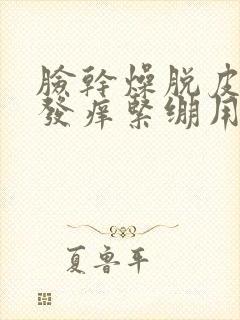 臉幹燥脱皮
發癢緊繃用
夏魯平